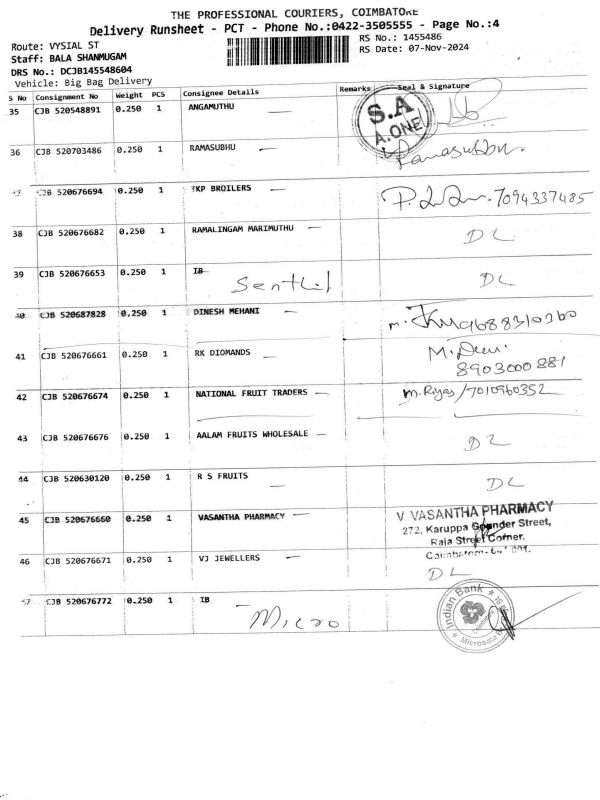 THE PROFESSIONAL COURIERS, COIMBATORE
Delivery Runsheet - PCT - Phone No.:0422-3505555 - Page No.:4
Route: VYSIAL ST
RS No.: 1455486
Staff: BALA SHANMUGAM
RS Date: 07-Nov-2024
DRS No.: DCJB145548604
Vehicle: Big Bag Delivery
S No Consignment No Weight PCS Consignee Details Remarks Seal & Signature
35 CJB 520548891 0.250 1 ANGAMUTHU —
S.A
A.ONE
36 CJB 520703486 0.250 1 RAMASUBHU — Ramasubbu.
37 CJB 520676694 0.250 1 TKP BROILERS — 7094337485
38 CJB 520676682 0.250 1 RAMALINGAM MARIMUTHU — DL
39 CJB 520676653 0.250 1 IB DL
Senthil
40 CJB 520687828 0.250 1 DINESH MEHANI — 9688310260
41 CJB 520676661 0.250 1 RK DIOMANDS — M. Devi
8903000881
42 CJB 520676674 0.250 1 NATIONAL FRUIT TRADERS — M. Riyas/7010960352
43 CJB 520676676 0.250 1 AALAM FRUITS WHOLESALE — DL
44 CJB 520630120 0.250 1 R S FRUITS — DL
45 CJB 520676660 0.250 1 VASANTHA PHARMACY —
V VASANTHA PHARMACY
272, Karuppa Gounder Street,
Raja Street Corner.
Coimbatore- 641 001.
46 CJB 520676671 0.250 1 VJ JEWELLERS — DL
47 CJB 520676772 0.250 1 IB
Micro
Indian Bank